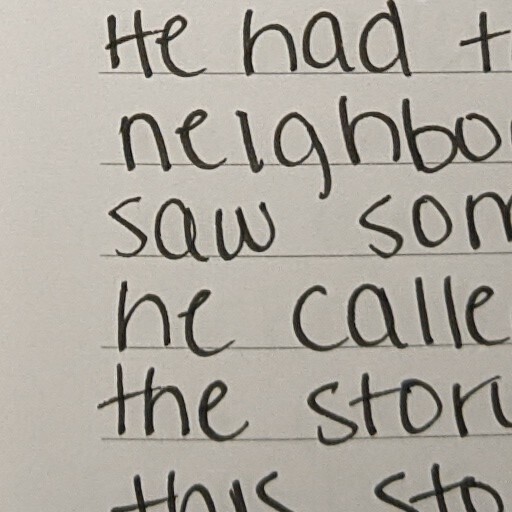 He had t
neighbo
saw som
he calle
the story
this sto